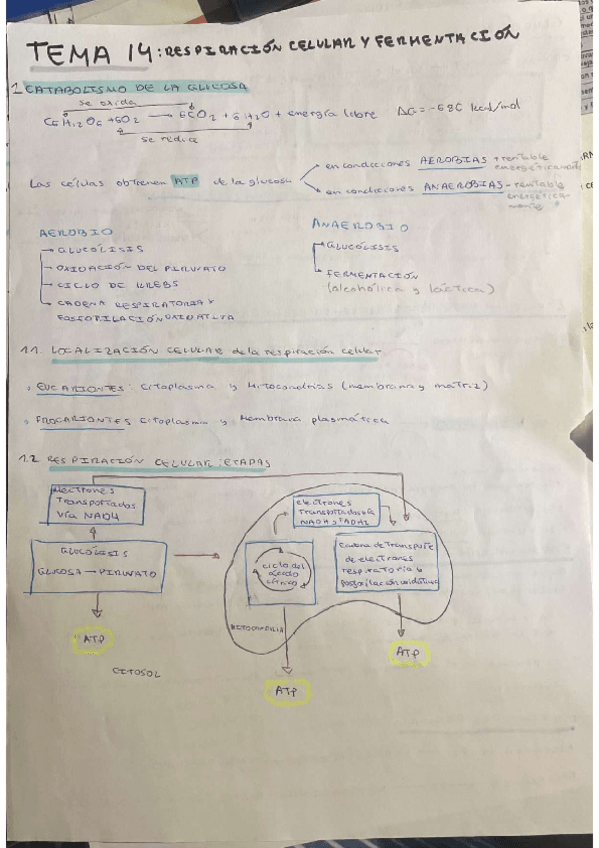 TEMA 14: RESPIRACIÓN CELULAR Y FERMENTACIÓN
1 CATABOLISMO DE LA GLUCOSA
se oxida
C6H12O6 + 6O2 → 6CO2 + 6H2O + energía libre ΔG = -686 kcal/mol
se reduce
Las células obtienen ATP de la glucosa
en condiciones AEROBIAS + rentable energéticamente
en condiciones ANAEROBIAS - rentable energéticamente
AEROBIO
GLUCÓLISIS
OXIDACIÓN DEL PIRUVATO
CICLO DE KREBS
CADENA RESPIRATORIA Y
FOSFORILACIÓN OXIDATIVA
ANAEROBIO
GLUCÓLISIS
FERMENTACIÓN
(alcohólica y láctica)
1.1. LOCALIZACIÓN CELULAR de la respiración celular
EUCARIONTES: Citoplasma y Mitocondrias (membrana y matriz)
PROCARIONTES Citoplasma y Membrana plasmática
1.2 RESPIRACIÓN CELULAR: ETAPAS
electrones
transportados
vía NADH
GLUCÓLISIS
GLUCOSA → PIRUVATO
ATP
CITOSOL
electrones
transportados
NADH y FADH2
ciclo del
ácido
cítrico
cadena de transporte
de electrones
respiratoria
fosforilación oxidativa
MITOCONDRIA
ATP
ATP